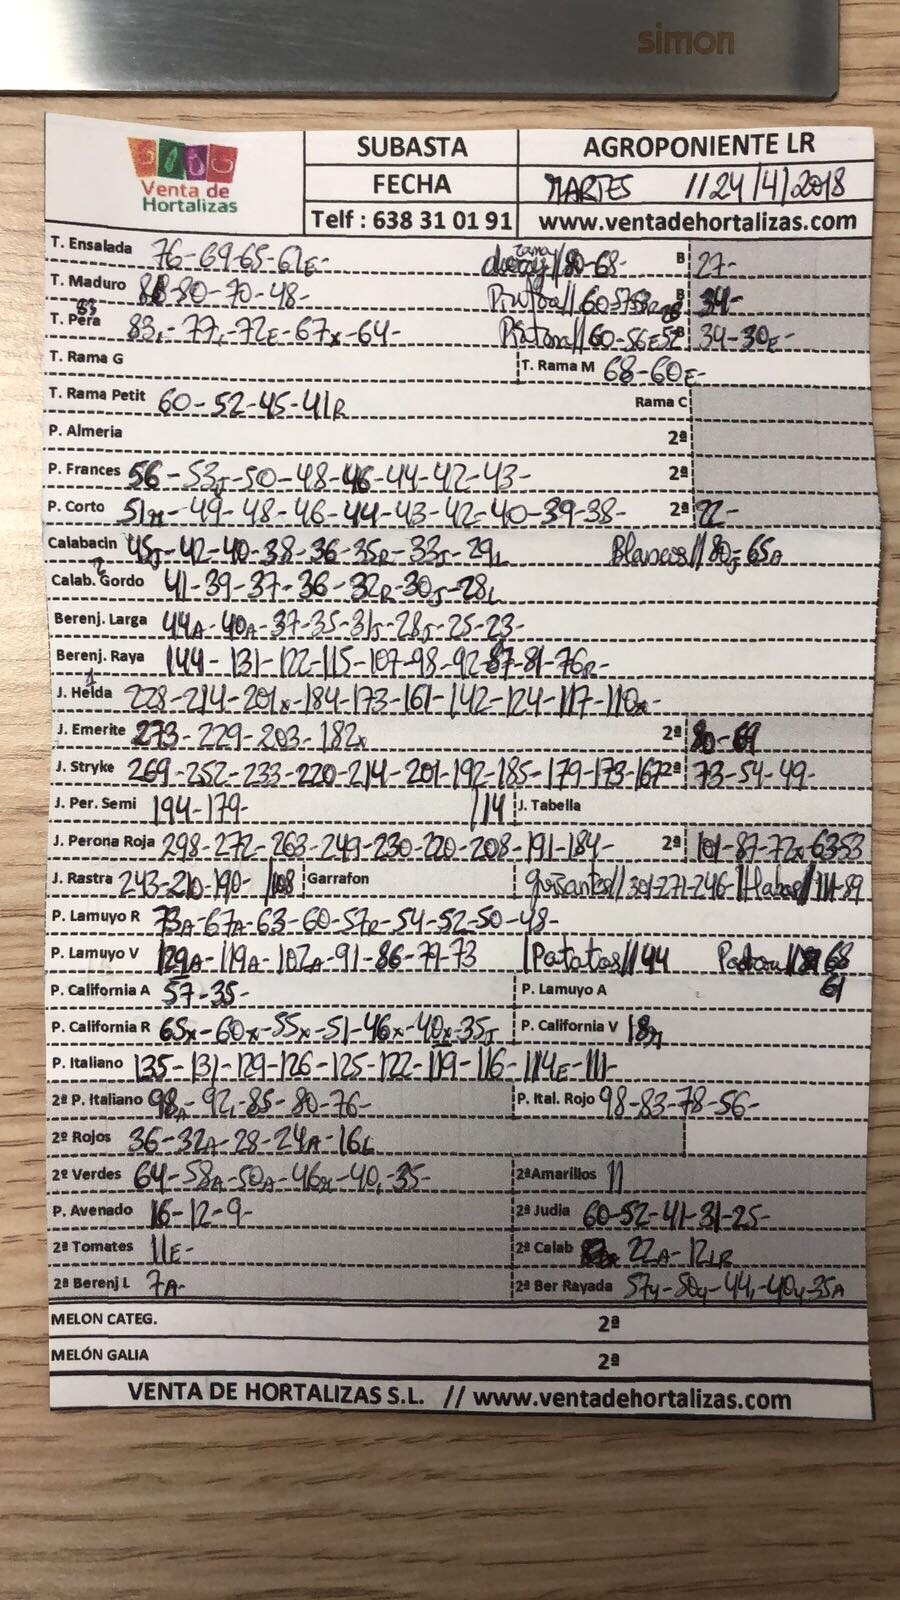 simon
Venta de
Hortalizas
SUBASTA AGROPONIENTE LR
FECHA MARTES //24/4/2018
Telf : 638 31 01 91 www.ventadehortalizas.com
T. Ensalada 76-69-65-61E- 80-68- B 27-
T. Maduro 80-70-48- B 34-
T. Pera 83,-77,-72E-67x-64- 60-56E52 B 34-30E-
T. Rama G T. Rama M 68-60E-
T. Rama Petit 60-52-45-41R Rama C
P. Almeria 2ª
P. Frances 56-53J-50-48-46-44-42-43- 2ª
P. Corto 51x-49-48-46-44-43-42-40-39-38- 2ª 22-
Calabacin 45J-42-40-38-36-35R-33J-29L Blancos//80J-65A
Calab. Gordo 41-39-37-36-32R-30J-28L
Berenj. Larga 44A-40A-37-35-31J-28J-25-23-
Berenj. Raya 144-131-122-115-107-98-92-87-81-76R-
J. Helda 228-214-201x-184-173-161-142-124-117-110x-
J. Emerite 273-229-203-182x 2ª 80-69
J. Stryke 269-252-233-220-214-201-192-185-179-173-167 2ª 73-54-49-
J. Per. Semi 194-179- /114 J. Tabella
J. Perona Roja 298-272-263-249-230-220-208-191-184- 2ª 101-87-72x-6353
J. Rastra 243-210-190- /108 Garrafon guisantes//301-271-246-Habas//111-89
P. Lamuyo R 73A-67A-63-60-57R-54-52-50-48-
P. Lamuyo V 129A-119A-107A-91-86-79-73 Patatas//44 68
P. California A 57-35- P. Lamuyo A 61
P. California R 65x-60x-55x-51-46x-40x-35J P. California V 18x
P. Italiano 135-131-129-126-125-122-119-116-114E-111-
2ª P. Italiano 98A-92,-85-80-76- P. Ital. Rojo 98-83-78-56-
2º Rojos 36-32A-28-24A-16L
2º Verdes 64-58A-50A-46x-40,-35- 2ªAmarillos 11
P. Avenado 16-12-9- 2ª Judia 60-52-41-31-25-
2ª Tomates 11E- 2ª Calab 22A-12LR
2ª Berenj L 7A- 2ª Ber Rayada 57y-50y-44,-40y-35A
MELON CATEG. 2ª
MELÓN GALIA 2ª
VENTA DE HORTALIZAS S.L. // www.ventadehortalizas.com